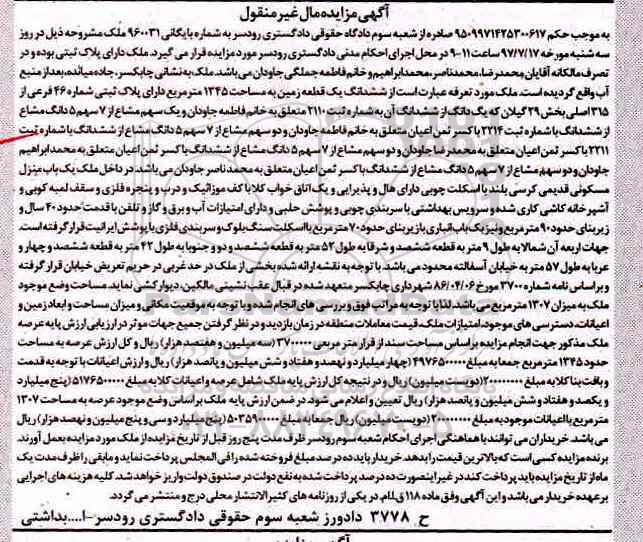 آگهی مزایده مال غیر منقول
به موجب حکم ۹۵۰۹۹۷۱۴۲۵۳۰۰۶۱۷ صادره از شعبه سوم دادگاه حقوقی دادگستری رودسر به شماره بایگانی ۹۶۰۰۳۱ ملک مشروحه ذیل در روز
سه شنبه مورخه ۹۷/۷/۱۷ ساعت ۱۱-۹ در محل اجرای احکام مدنی دادگستری رودسر مورد مزایده قرار می گیرد. ملک دارای پلاک ثبتی بوده و در
تصرف مالکانه آقایان محمدرضا، محمدناصر، محمدابراهیم و خانم فاطمه جملگی جاودان می باشد. ملک به نشانی چابکسر، جاده میانده، بعد از منبع
آب واقع گردیده است. ملک مورد تعرفه عبارت است از ششدانگ یک قطعه زمین به مساحت ۱۳۴۵ مترمربع دارای پلاک ثبتی شماره ۴۶ فرعی از
۳۱۵ اصلی بخش ۲۹ گیلان که یک دانگ از ششدانگ آن به شماره ثبت ۲۱۱۰ متعلق به خانم فاطمه جاودان و یک سهم مشاع از ۷ سهم ۵ دانگ مشاع
از ششدانگ با شماره ثبت ۲۲۱۴ با کسر ثمن اعیان متعلق به خانم فاطمه جاودان و دو سهم مشاع از ۷ سهم ۵ دانگ مشاع از ششدانگ با شماره ثبت
۲۲۱۱ با کسر ثمن اعیان متعلق به محمدرضا جاودان و دو سهم مشاع از ۷ سهم ۵ دانگ مشاع از ششدانگ با کسر ثمن اعیان متعلق به محمدابراهیم
جاودان و دو سهم مشاع از ۷ سهم ۵ دانگ مشاع از ششدانگ با کسر ثمن اعیان متعلق به محمد ناصر جاودان می باشد. در داخل ملک یک باب منزل
مسکونی قدیمی کرسی بلند با اسکلت چوبی دارای هال و پذیرایی و یک اتاق خواب کلا با کف موزائیک و درب و پنجره فلزی و سقف لمبه کوبی و
آشپزخانه کاشی کاری شده و سرویس بهداشتی با سربندی چوبی و پوشش حلبی و دارای امتیازات آب و برق و گاز و تلفن با قدمت حدود ۴۰ سال و
زیربنای حدود ۹۰ مترمربع و نیز یک باب انباری باز بر بنای حدود ۷۰ مترمربع با اسکلت سنگ بلوک و سربندی فلزی با پوشش ایرانیت قرار گرفته است.
جهات اربعه آن شمالا به طول ۹ متر به قطعه ششصد و شرقا به طول ۵۲ متر به قطعه ششصد و دو و جنوبا به طول ۴۲ متر به قطعه ششصد و چهار و
غربا به طول ۵۷ متر به خیابان آسفالته محدود می باشد. با توجه به نقشه ارائه شده بخشی از ملک در حد غربی در حریم تعریض خیابان قرار گرفته
و براساس نامه شماره ۳۷۰۰ مورخ ۸۶/۰۴/۰۶ شهرداری چابکسر متعهد شده در قبال عقب نشینی مالکین، دیوار کشی نماید. مساحت وضع موجود
ملک به میزان ۱۳۰۷ مترمربع می باشد. لذا با توجه به مراتب فوق و بررسی های انجام شده و با توجه به موقعیت مکانی و میزان مساحت و ابعاد زمین و
اعیانات، دسترسی های موجود، امتیازات ملک، قیمت معاملات منطقه در زمان بازدید و در نظر گرفتن جمیع جهات موثر در ارزیابی ارزش پایه عرصه
ملک مذکور جهت انجام مزایده بر اساس مساحت سند از قرار متر مربعی ۳۷۰۰۰۰۰ (سه میلیون و هفتصد هزار) ریال و کل ارزش عرصه به مساحت
حدود ۱۳۴۵ مترمربع جمعا به مبلغ ۴۹۷۶۵۰۰۰۰۰ (چهار میلیارد و نهصد و هفتاد و شش میلیون و پانصد هزار) ریال و ارزش اعیانات با توجه به قدمت
و بافت بنا کلا به مبلغ ۲۰۰۰۰۰۰۰۰ (دویست میلیون) ریال و در نتیجه کل ارزش پایه ملک شامل عرصه و اعیانات کلا به مبلغ ۵۱۷۶۵۰۰۰۰۰ (پنج میلیارد
و یکصد و هفتاد و شش میلیون و پانصد هزار) ریال تعیین و اعلام می شود. در ضمن ارزش پایه ملک بر اساس وضع موجود عرصه به مساحت ۱۳۰۷
مترمربع با اعیانات موجود به مبلغ ۲۰۰۰۰۰۰۰۰ (دویست میلیون) ریال جمعا به مبلغ ۵۰۳۵۹۰۰۰۰۰ (پنج میلیارد و سی و پنج میلیون و نهصد هزار) ریال
می باشد. خریداران می توانند با هماهنگی اجرای احکام شعبه سوم رودسر ظرف مدت پنج روز قبل از تاریخ مزایده از ملک مورد مزایده بعمل آورند.
برنده مزایده کسی است که بالاترین قیمت را بدهد. خریدار باید ده درصد مبلغ فروخته شده را فی المجلس پرداخت نماید و مابقی را ظرف مدت یک
ماه از تاریخ مزایده باید پرداخت کند در غیر اینصورت ده درصد پرداخت شده به نفع دولت در صندوق دولت واریز خواهد شد. کلیه هزینه های اجرایی
بر عهده خریدار می باشد و این آگهی وفق ماده ۱۱۸ ق.ا.م. در یکی از روزنامه های کثیرالانتشار محلی درج و منتشر می گردد.
ح ۳۷۷۸ دادورز شعبه سوم حقوقی دادگستری رودسر-ا....بداشتی